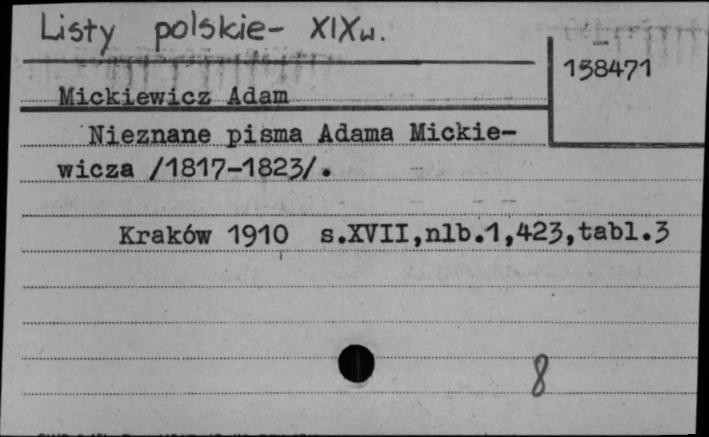 Listy polskie- XIXw.
158471
Mickiewicz Adam
Nieznane pisma Adama Mickie-
wicza /1817-1823/.
Kraków 1910 s.XVII,nlb.1,423,tabl.3
8